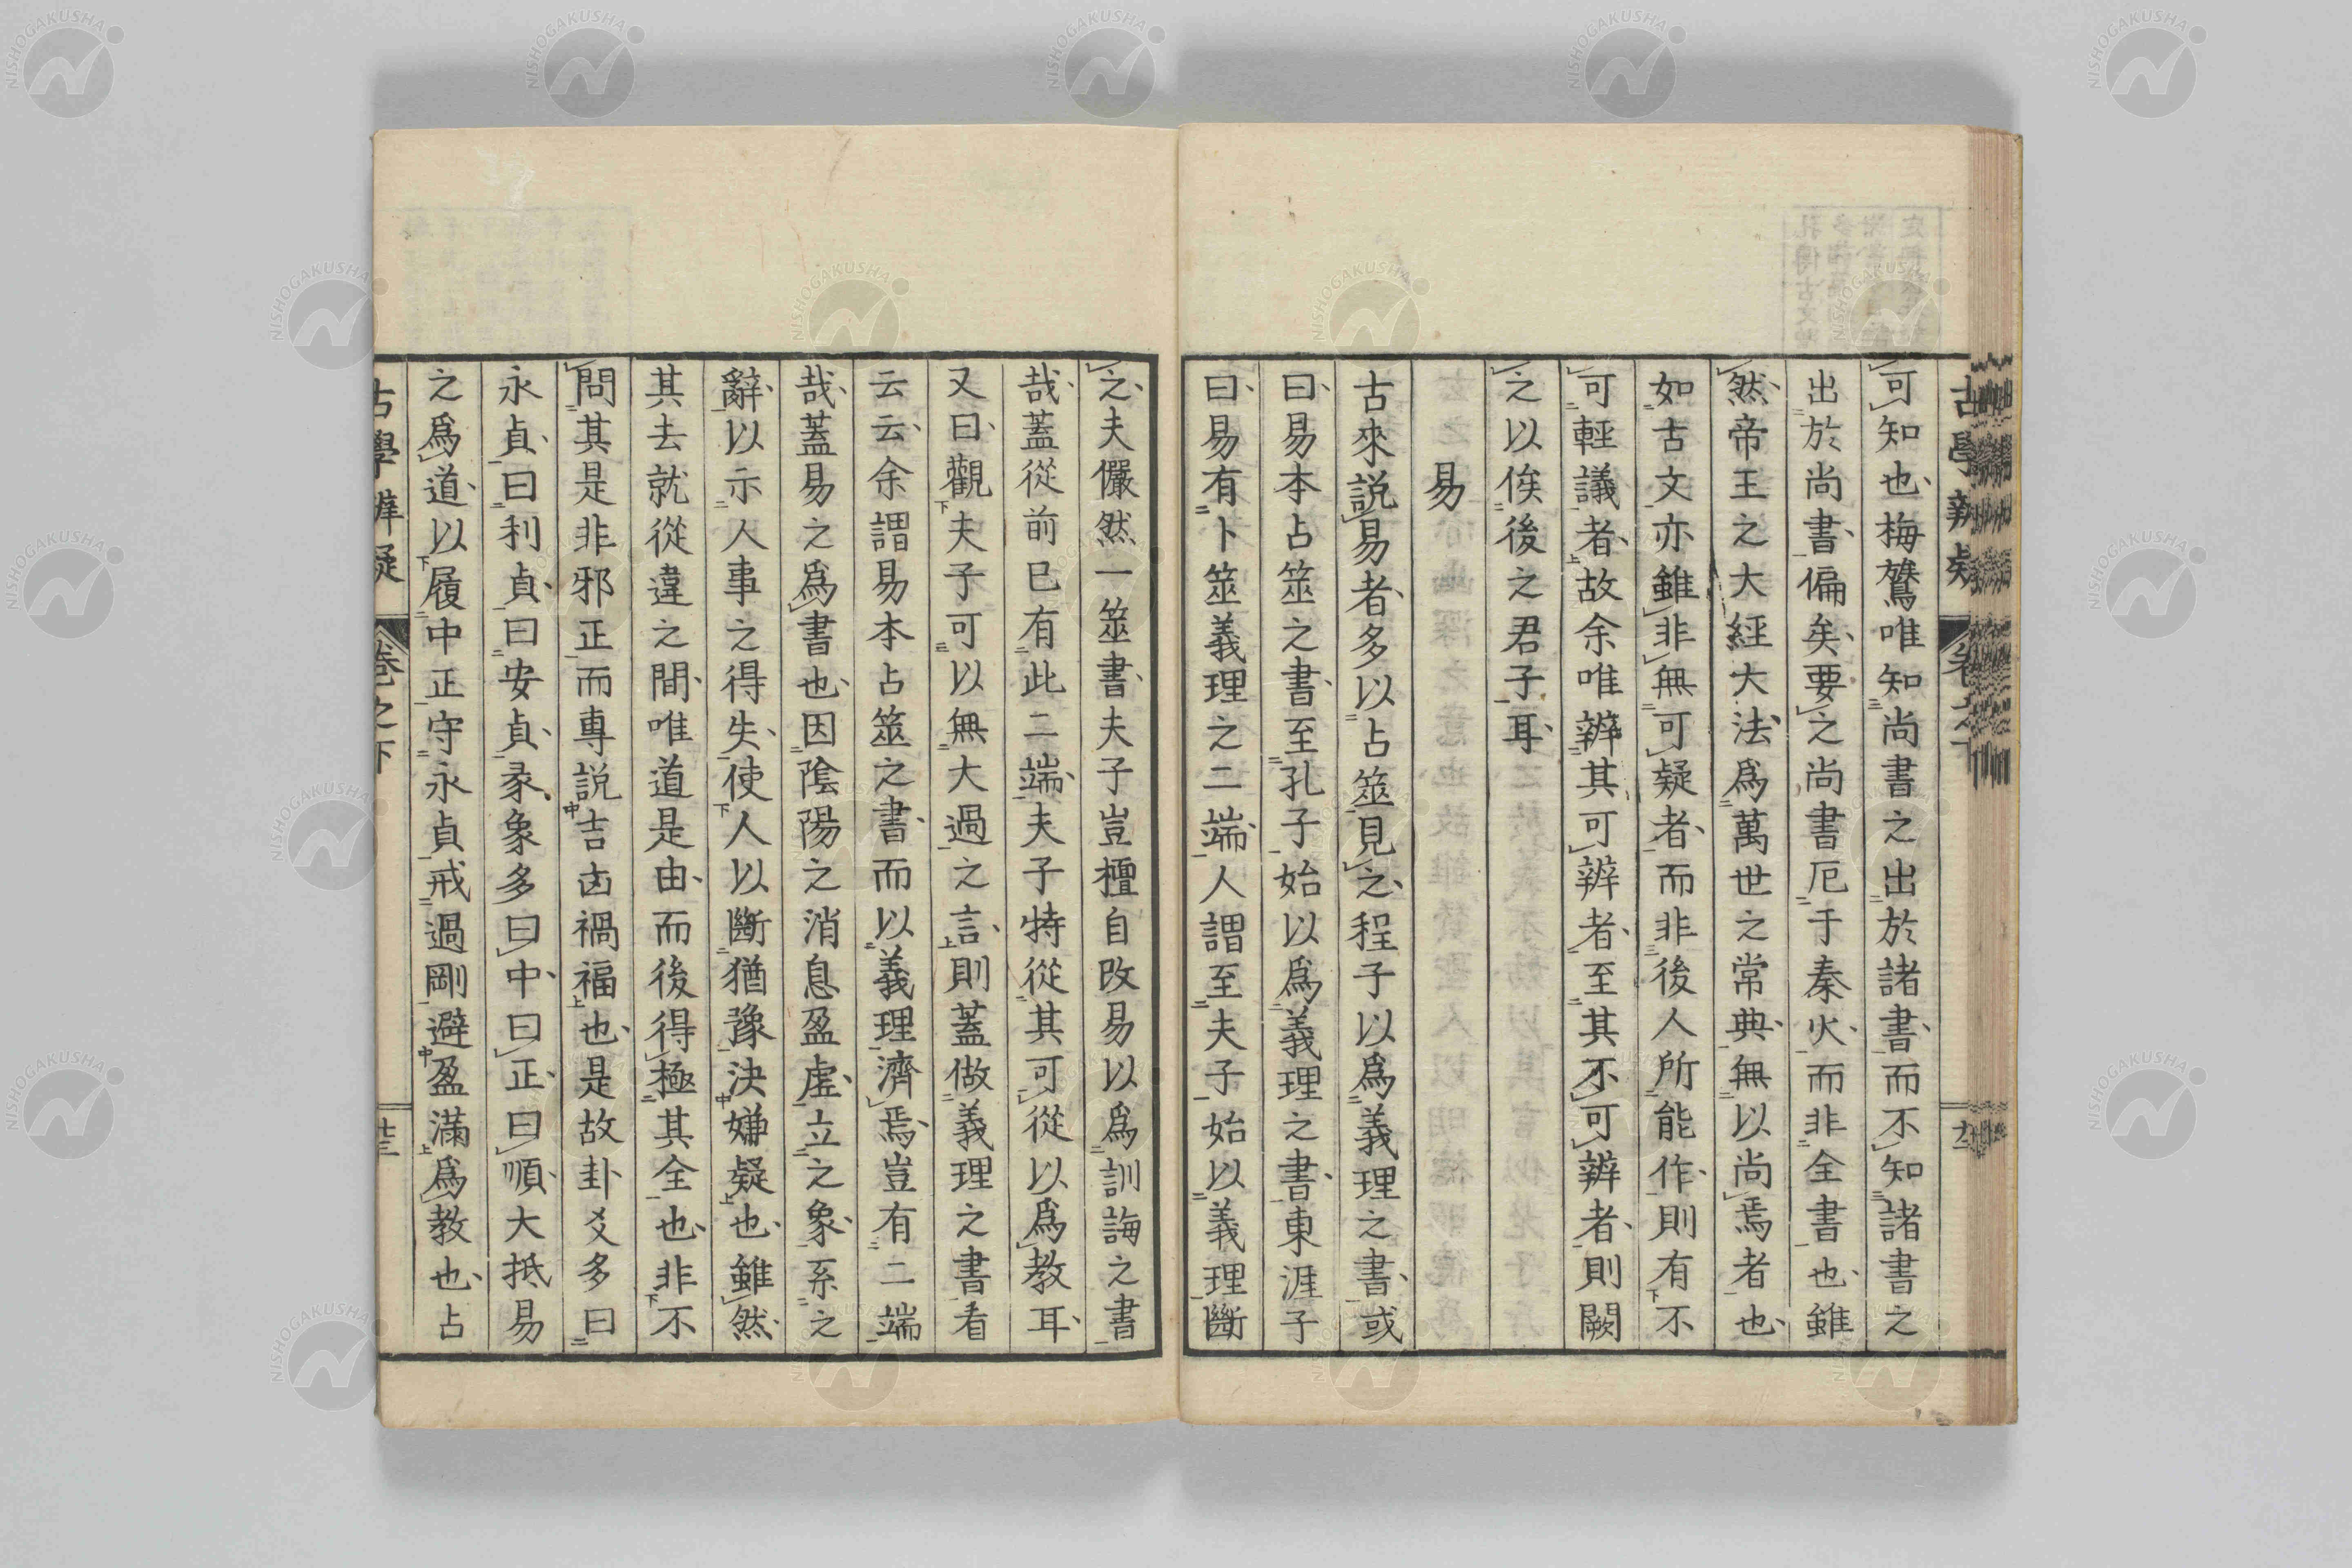 古學辨疑
可知也梅鷟唯知尚書之出於諸書而不知諸書之
出於尚書偏矣要之尚書厄于秦火而非全書也雖
然帝王之大經大法爲萬世之常典無以尚焉者也
如古文亦雖非無可疑者而非後人所能作則有不
可輕議者故余唯辨其可辨者至其不可辨者則闕
之以俟後之君子耳
易
古來説易者多以占筮見之程子以爲義理之書或
曰易本占筮之書至孔子始以爲義理之書東涯子
曰易有卜筮義理之二端人謂至夫子始以義理斷
之夫儼然一筮書夫子豈檀自改易以爲訓誨之書
哉蓋從前已有此二端夫子特從其可從以爲教耳
又曰觀夫子可以無大過之言則蓋做義理之書看
云云余謂易本占筮之書而以義理濟焉豈有二端
哉蓋易之爲書也因陰陽之消息盈虛立之象系之
辭以示人事之得失使人以斷猶豫決嫌疑也雖然
其去就從違之間唯道是由而後得極其全也非不
問其是非邪正而專説吉凶禍福也是故卦爻多曰
永貞曰利貞曰安貞彖象多曰中曰正曰順大抵易
之爲道以履中正守永貞戒過剛避盈滿爲教也占
古學辨疑 卷之下 廿三
NISHOGAKUSHA